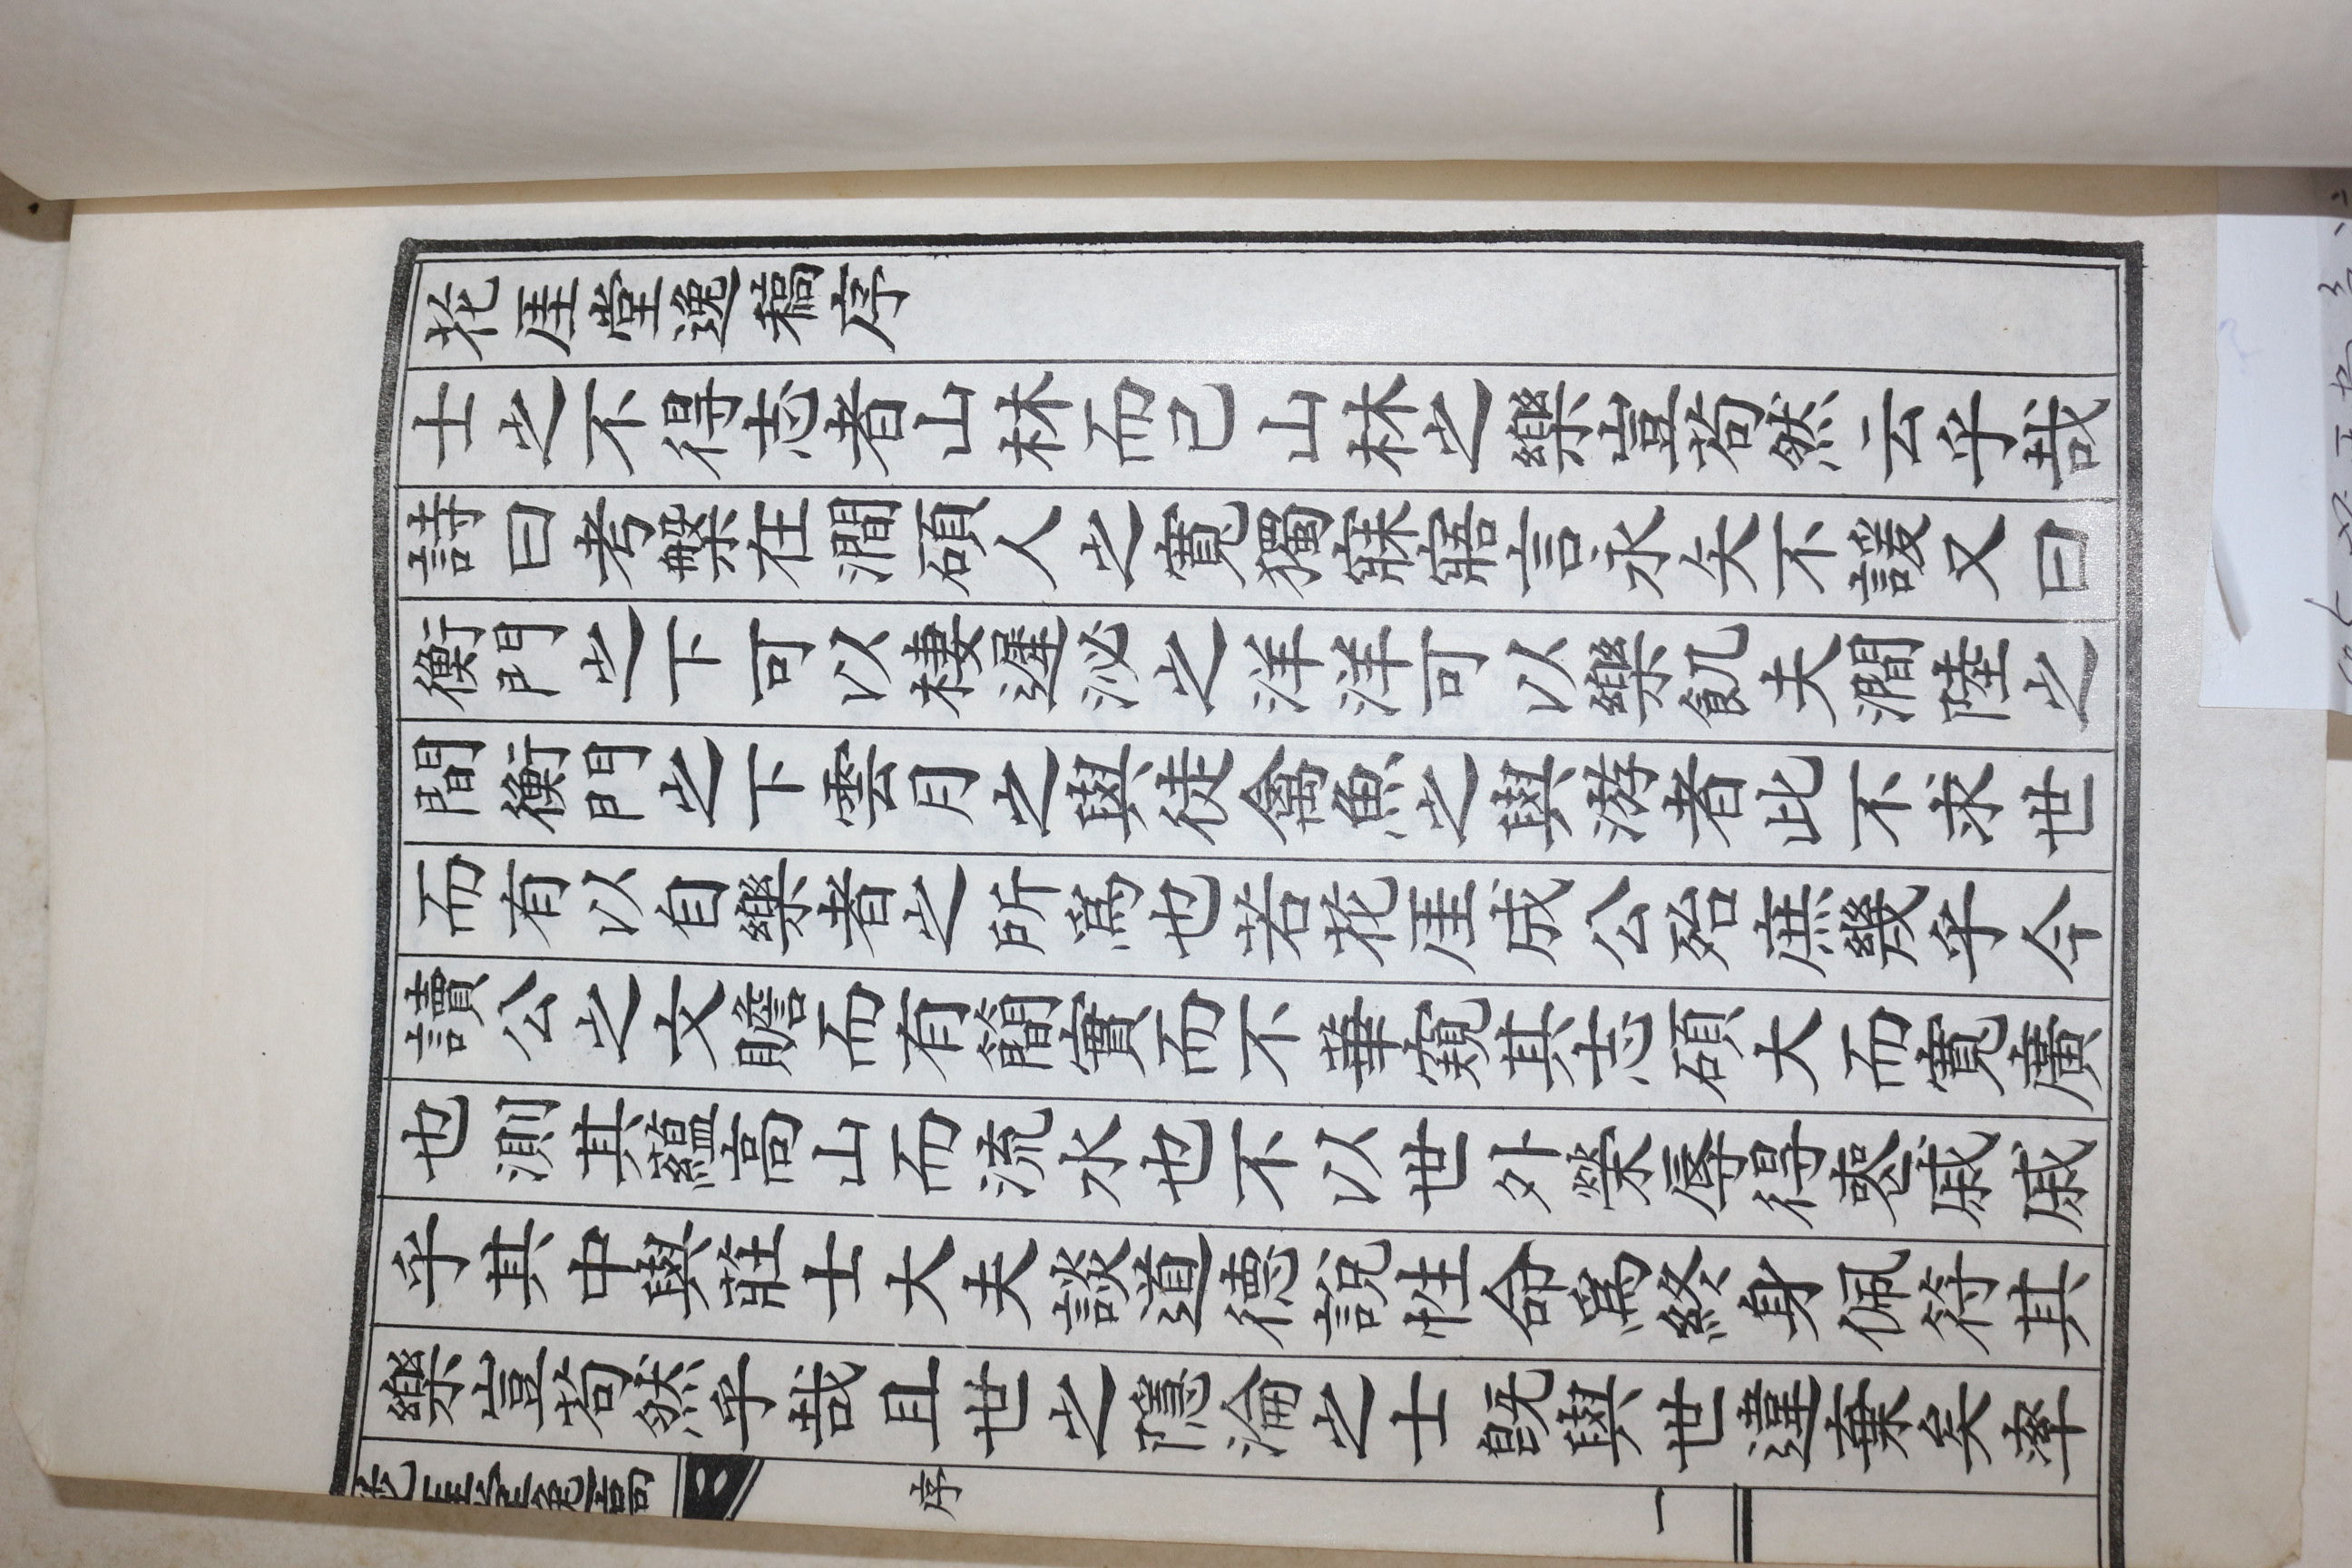 花厓堂逸稿序
士之不得志者山林而已山林之樂豈苟然云乎哉
詩曰考槃在澗碩人之寬獨寐寤言永矢不諼又曰
衡門之下可以棲遲泌之洋洋可以樂飢夫澗陸之
間衡門之下雲月之與徒禽魚之與游者此不求世
而有以自樂者之所爲也若花厓成公殆庶幾乎今
讀公之文贍而有簡實而不華窺其志碩大而寬廣
也測其蘊高山而流水也不以世外榮辱得喪戚戚
乎其中與莊士大夫談道德說性命爲終身佩符其
樂豈苟然乎哉且世之隱淪之士旣與世違棄矣率
花厓堂逸稿
序
一